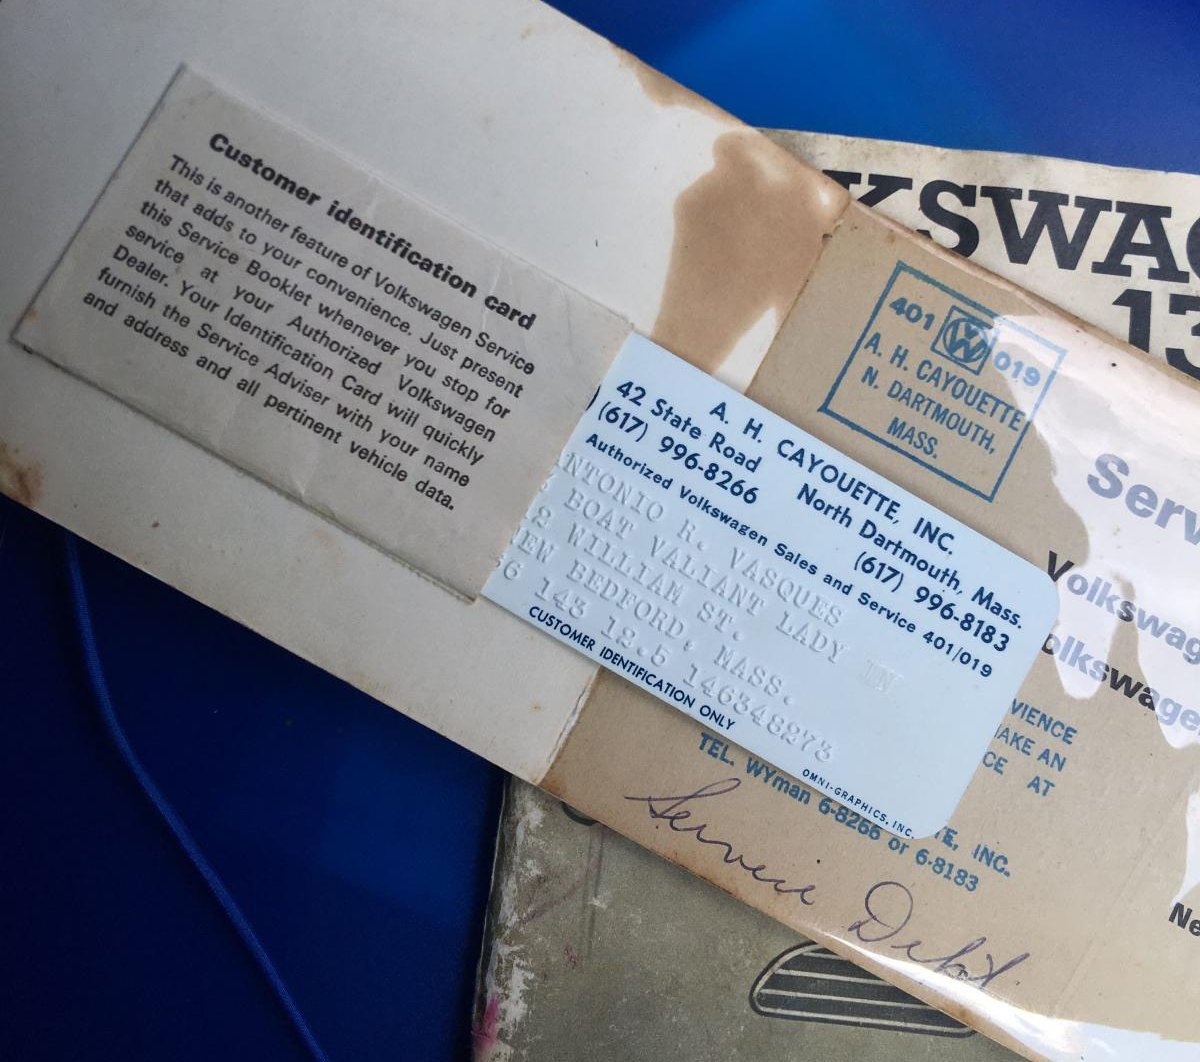 Customer identification card
This is another feature of Volkswagen Service
that adds to your convenience. Just present
this Service Booklet whenever you stop for
service at your Authorized Volkswagen
Dealer. Your Identification Card will quickly
furnish the Service Adviser with your name
and address and all pertinent vehicle data.
A. H. CAYOUETTE, INC.
42 State Road North Dartmouth, Mass.
(617) 996-8266 (617) 996-8183
Authorized Volkswagen Sales and Service 401/019
NTONIO R. VASQUES
BOAT VALIANT LADY
2 WILLIAM ST.
EW BEDFORD, MASS.
6 143 12.5 146348273
CUSTOMER IDENTIFICATION ONLY
OMNI-GRAPHICS, INC.
KSWAG
13
401 VW 019
A. H. CAYOUETTE
N. DARTMOUTH,
MASS.
Serv
Volkswag
olkswage
VIENCE
AKE AN
CE AT
TE, INC.
TEL. WYman 6-8266 or 6-8183
Service Dept
Ne